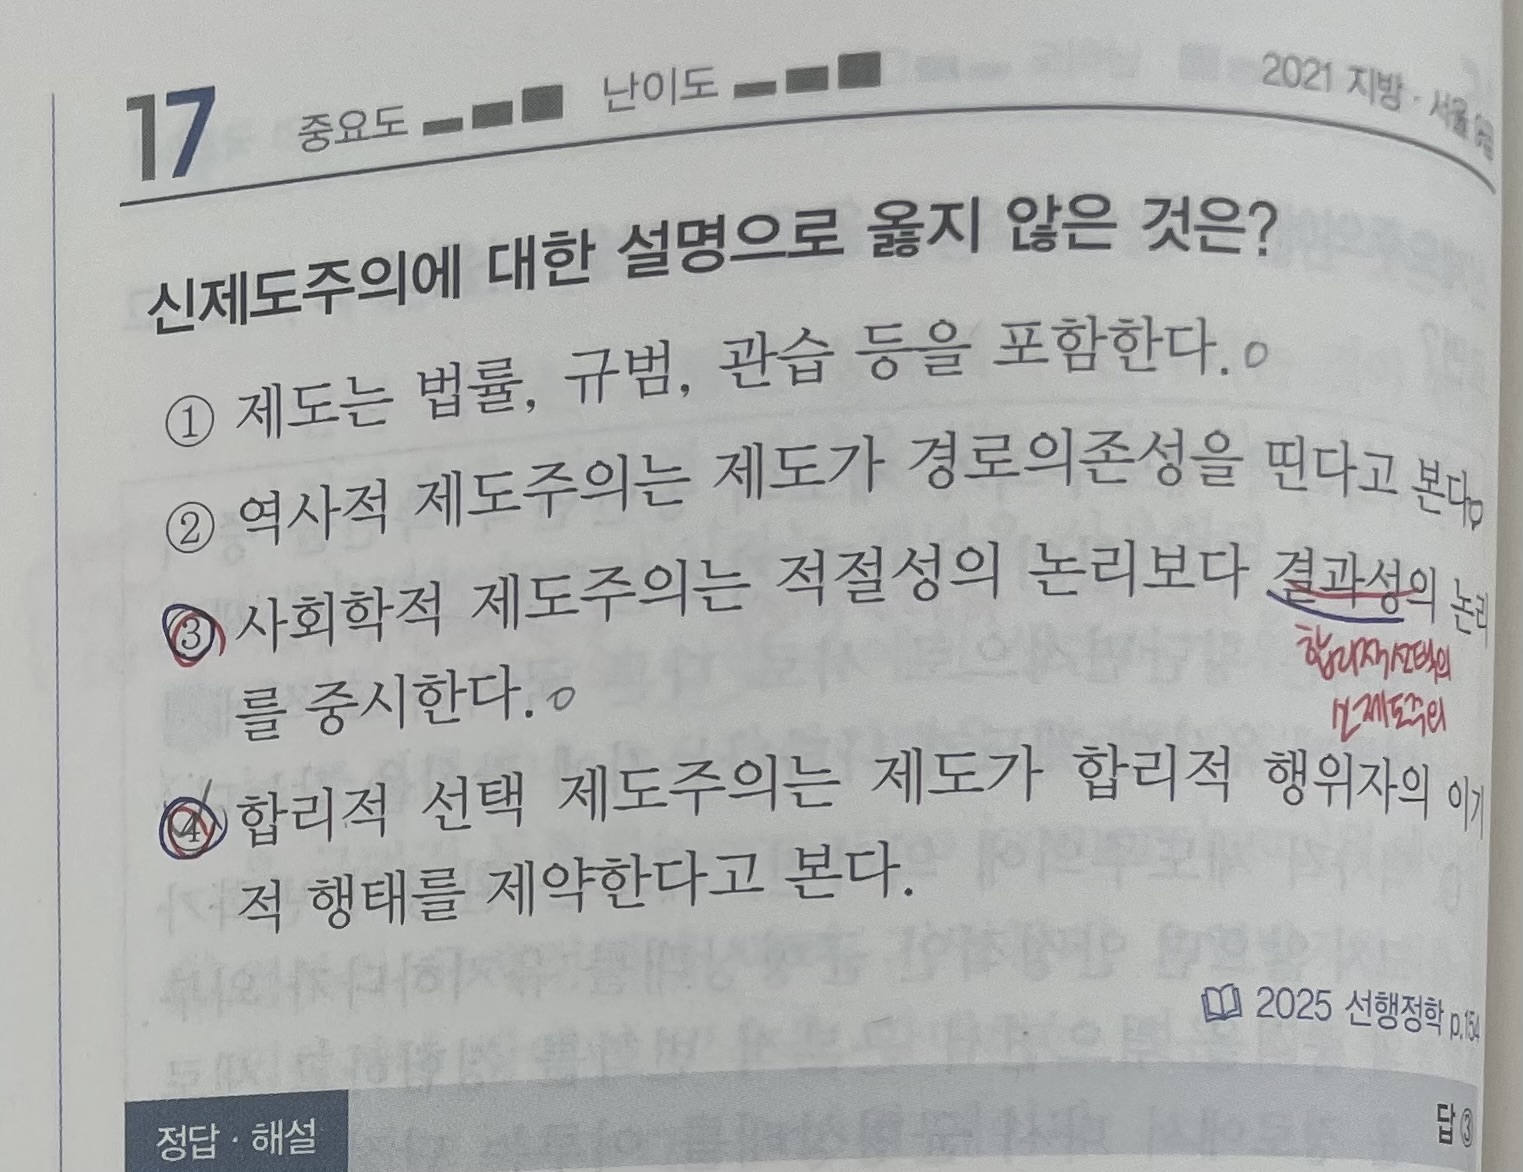 17 중요도 난이도 2021 지방·서울
신제도주의에 대한 설명으로 옳지 않은 것은?
① 제도는 법률, 규범, 관습 등을 포함한다. o
② 역사적 제도주의는 제도가 경로의존성을 띤다고 본다. o
③ 사회학적 제도주의는 적절성의 논리보다 결과성의 논리
합리적선택의
신제도주의
를 중시한다. o
④ 합리적 선택 제도주의는 제도가 합리적 행위자의 이기
적 행태를 제약한다고 본다.
2025 선행정학 p.154
정답·해설 답 ③